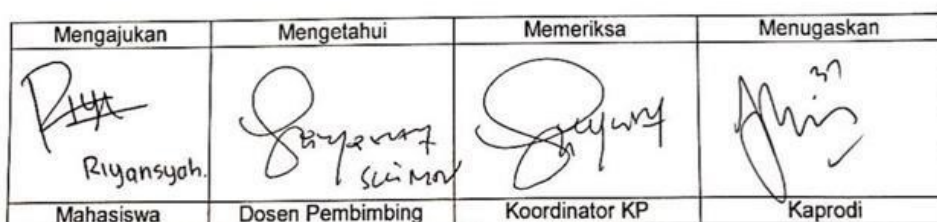 Mengajukan Mengetahui Memeriksa Menugaskan
Riyansyah.
Mahasiswa Dosen Pembimbing Koordinator KP Kaprodi